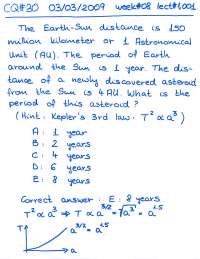 CQ#30 03/03/2009 week#08 lect#1001
The Earth-Sun distance is 150
million kilometer or 1 Astronomical
Unit (AU). The period of Earth
around the Sun is 1 year. The dis-
tance of a newly discovered asteroid
from the Sun is 4 AU. What is the
period of this asteroid?
(Hint: Kepler's 3rd law: T² ∝ a³)
A: 1 year
B: 2 years
C: 4 years
D: 6 years
E: 8 years
Correct answer: E: 8 years
T² ∝ a³ ⇒ T ∝ a^3/2 = √a³ = a^1.5
T
a^3/2 = a^1.5
a